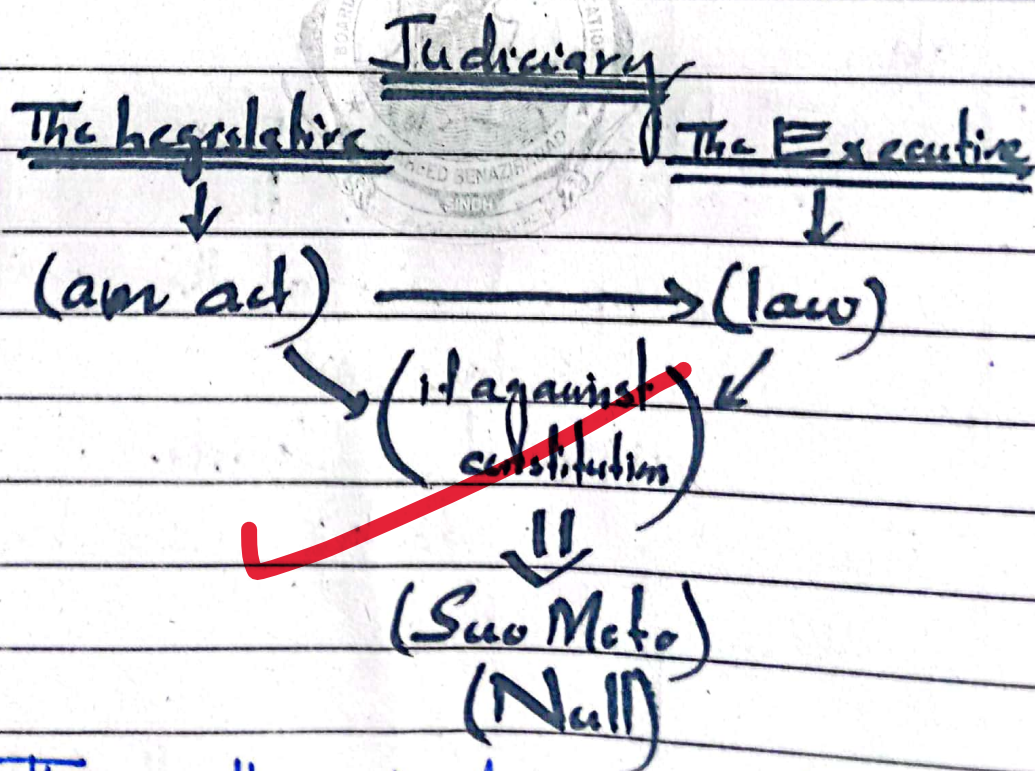 Judiciary
The Legislative The Executive
(am act) (law)
(if against
constitution)
(Suo Moto)
(Null)